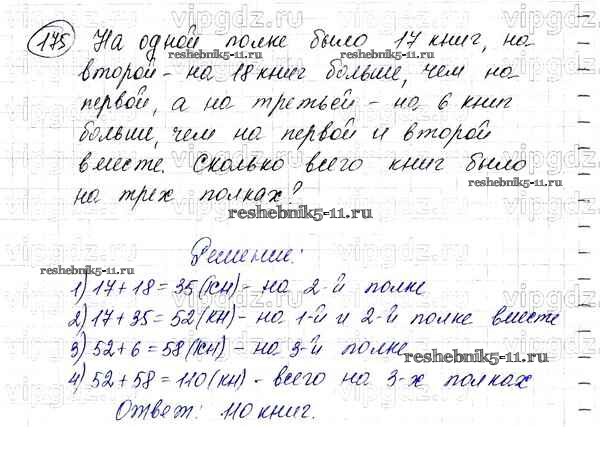 175 На одной полке было 17 книг, на
второй - на 18 книг больше, чем на
первой, а на третьей - на 6 книг
больше, чем на первой и второй
вместе. Сколько всего книг было
на трех полках?
Решение:
1) 17 + 18 = 35 (кн) - на 2-й полке
2) 17 + 35 = 52 (кн) - на 1-й и 2-й полке вместе
3) 52 + 6 = 58 (кн) - на 3-й полке
4) 52 + 58 = 110 (кн) - всего на 3-х полках
Ответ: 110 книг.
vipgdz.ru
reshebnik5-11.ru
reshebnik5-11.ru
reshebnik5-11.ru
reshebnik5-11.ru
reshebnik5-11.ru
reshebnik5-11.ru